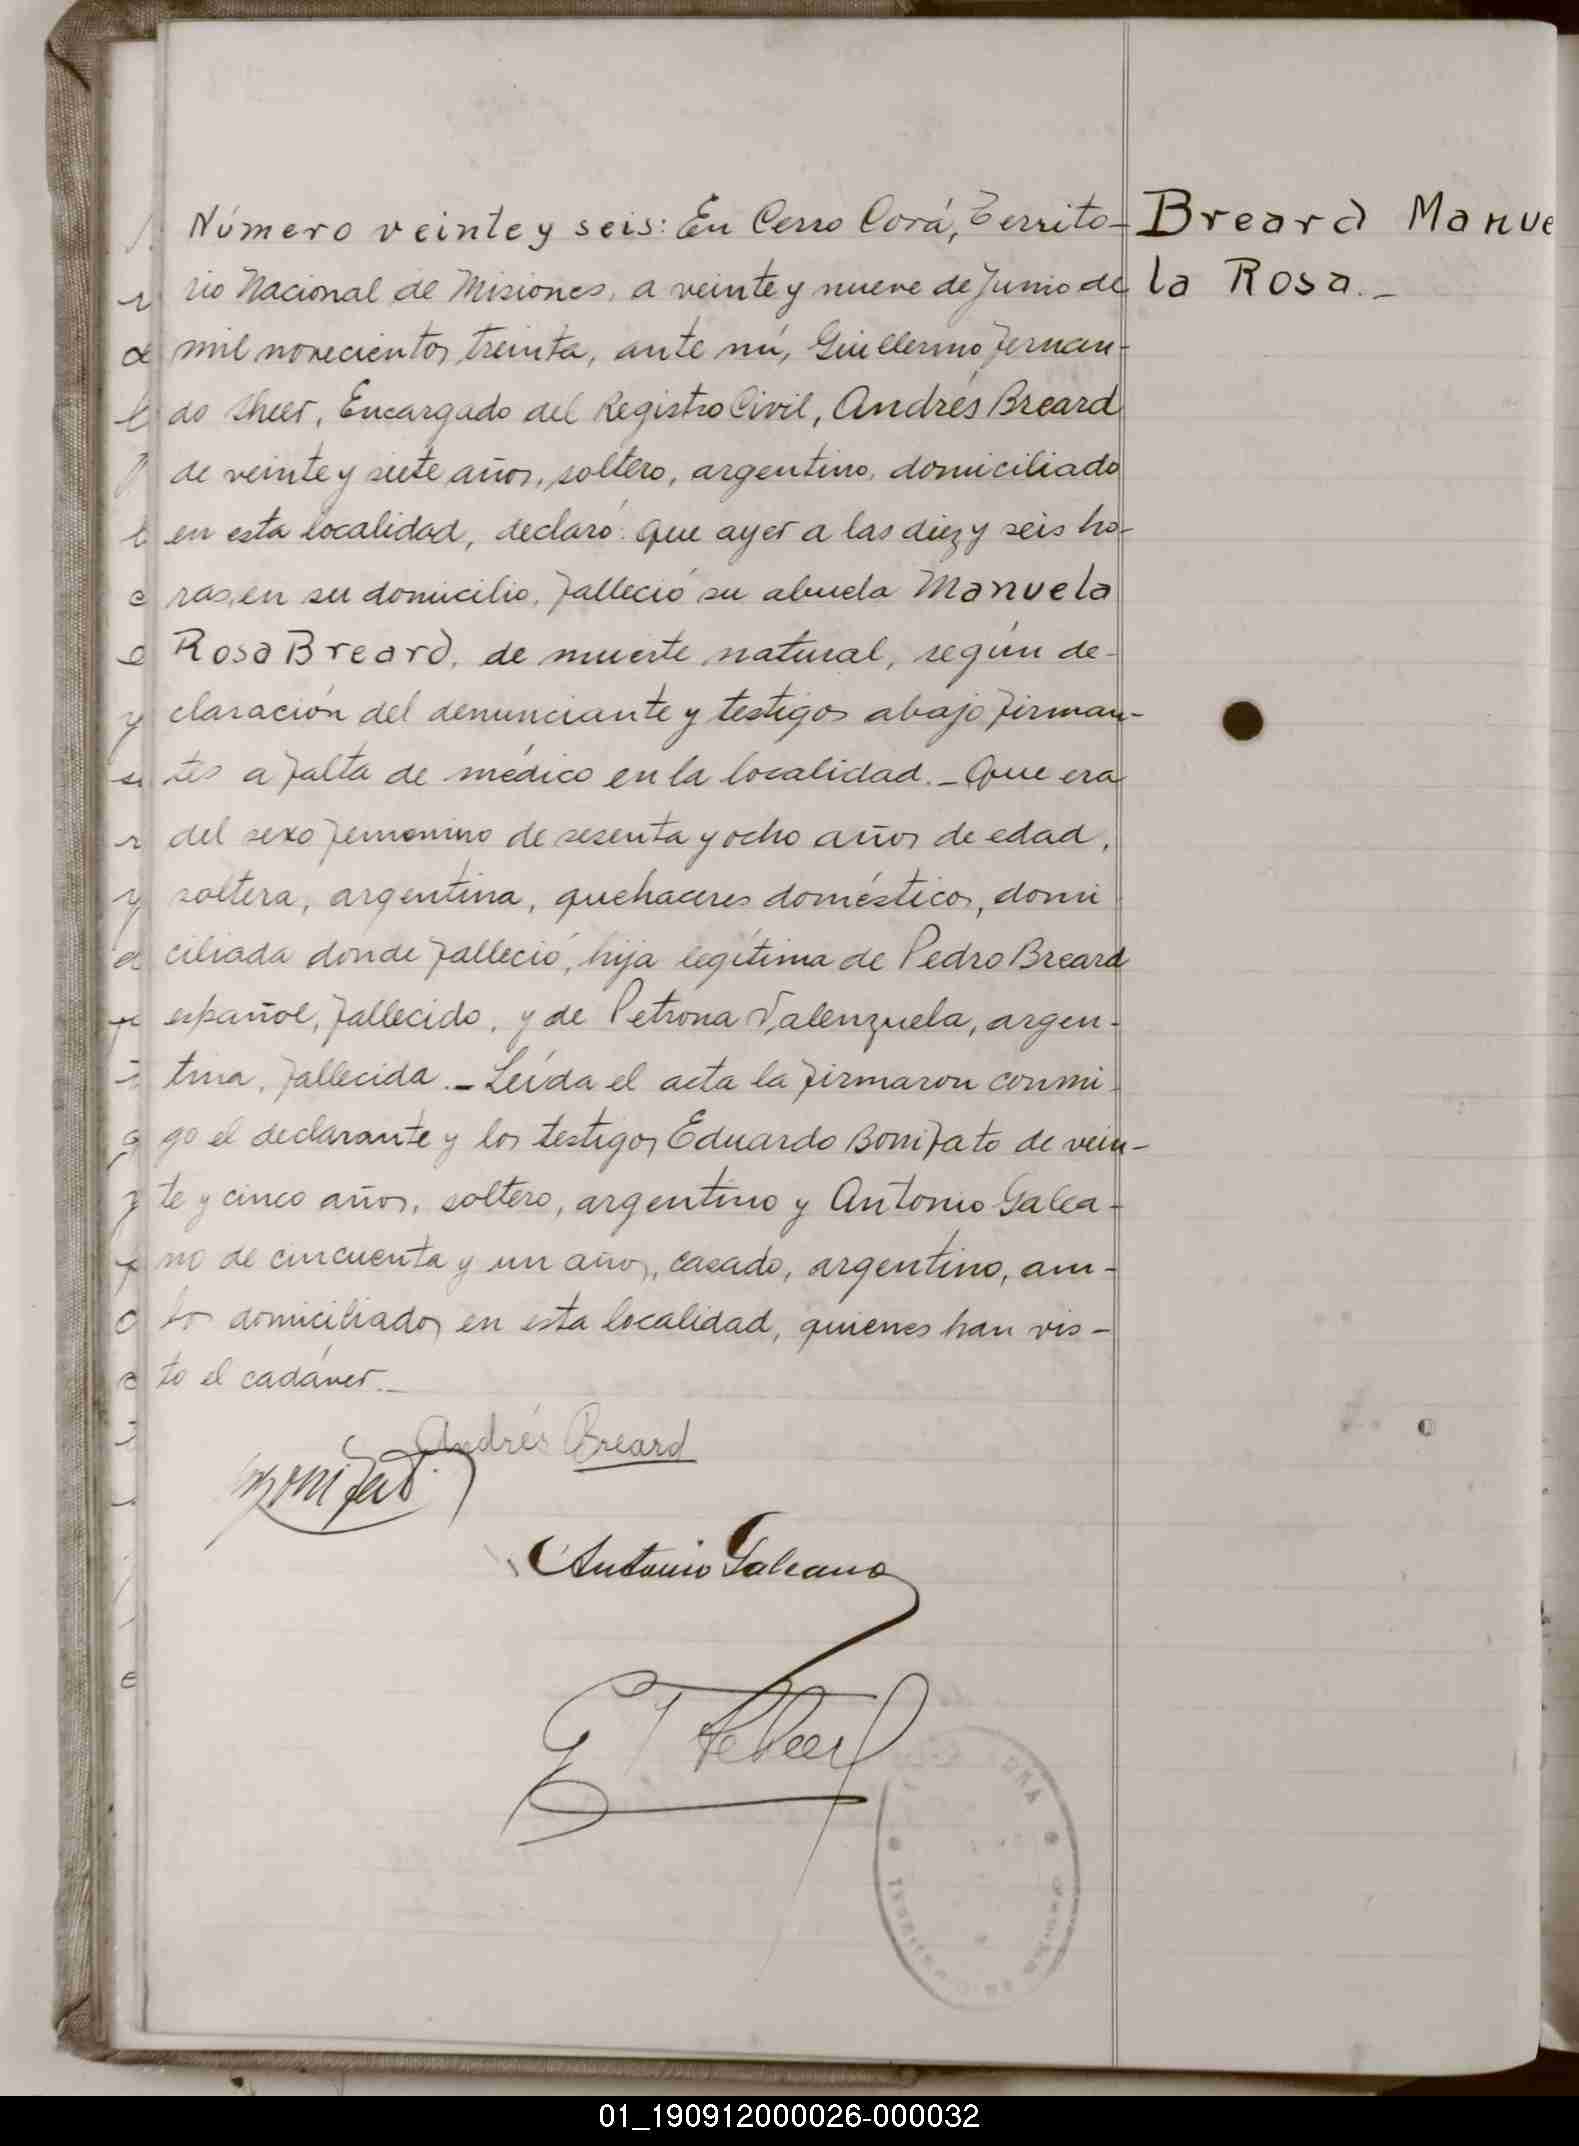 Número veinte y seis: En Cerro Corá, Territo-
rio Nacional de Misiones, a veinte y nueve de Junio de
mil novecientos treinta, ante mí, Guillermo Fernan-
do Sheer, Encargado del Registro Civil, Andrés Breard
de veinte y siete años, soltero, argentino, domiciliado
en esta localidad, declaró: Que ayer a las diez y seis ho-
ras, en su domicilio, falleció su abuela Manuela
Rosa Breard, de muerte natural, según de-
claración del denunciante y testigos abajo firman-
tes a falta de médico en la localidad._ Que era
del sexo femenino de sesenta y ocho años de edad,
soltera, argentina, quehaceres domésticos, domi
ciliada donde falleció, hija legítima de Pedro Breard
español, fallecido, y de Petrona Valenzuela, argen-
tina, fallecida._ Leída el acta la firmaron conmi-
go el declarante y los testigos Eduardo Bonifato de vein-
te y cinco años, soltero, argentino y Antonio Galea-
no de cincuenta y un años, casado, argentino, am-
bos domiciliados en esta localidad, quienes han vis-
to el cadáver._
Breard Manue
la Rosa._
Andrés Breard
Bonifato
Antonio Galeano
01_190912000026-000032